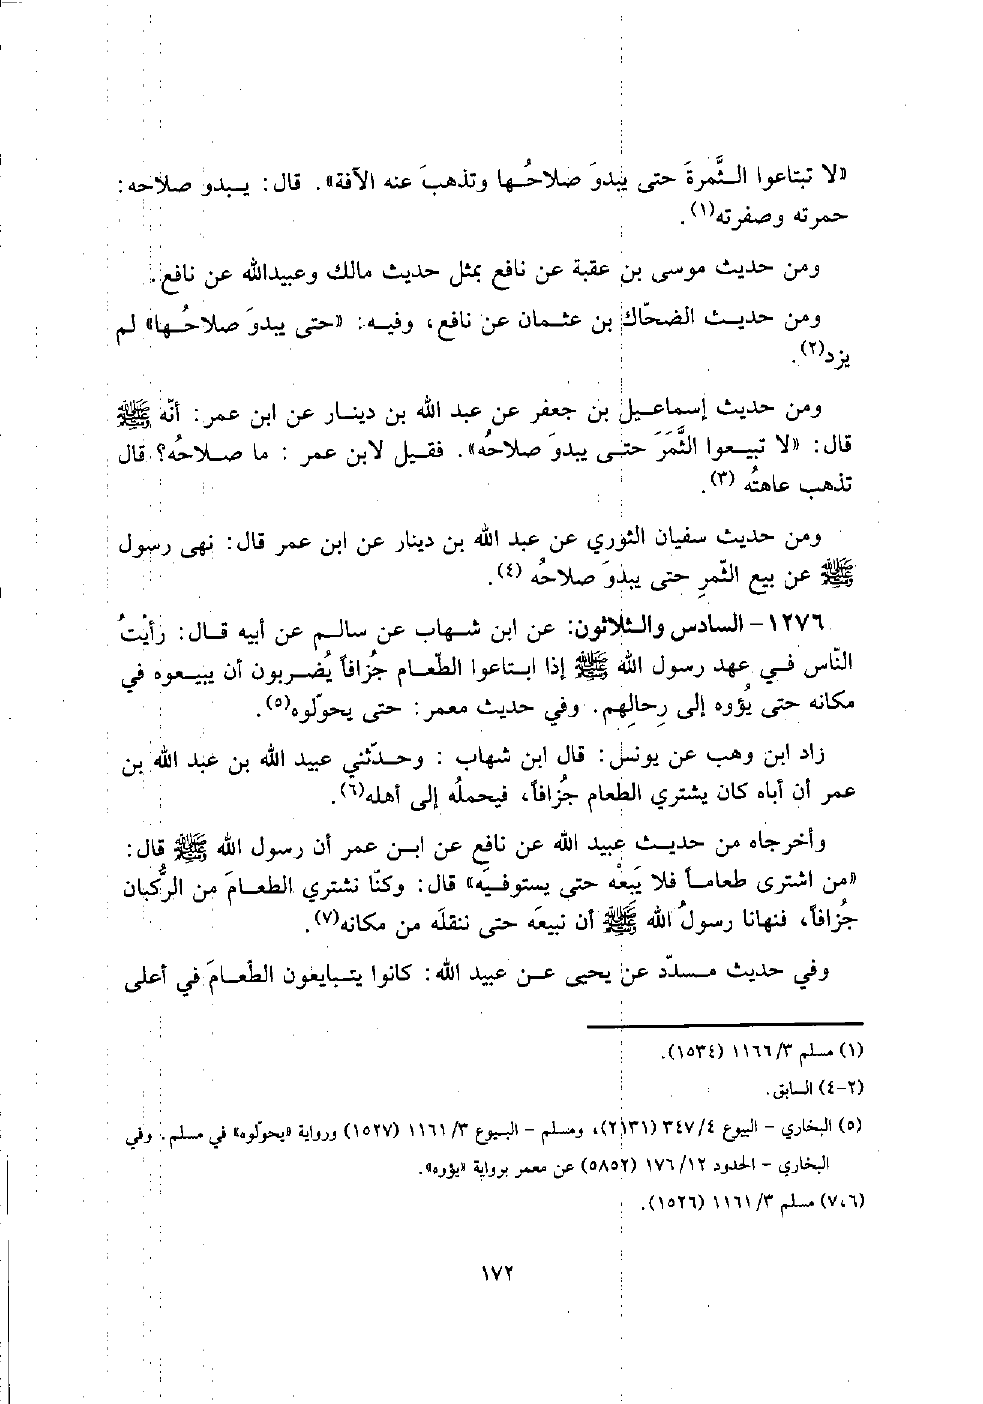 «لا تبتاعوا الثَّمرةَ حتى يبدوَ صلاحُها وتذهبَ عنه الآفة». قال: يبدو صلاحه:
حمرته وصفرته(١).
ومن حديث موسى بن عقبة عن نافع بمثل حديث مالك وعبيدالله عن نافع.
ومن حديث الضحّاك بن عثمان عن نافع، وفيه: «حتى يبدوَ صلاحُها» لم
يزد(٢).
ومن حديث إسماعيل بن جعفر عن عبد الله بن دينار عن ابن عمر: أنّه ﷺ
قال: «لا تبيعوا الثَّمَرَ حتى يبدوَ صلاحُه». فقيل لابن عمر : ما صلاحُه؟ قال
تذهب عاهتُه (٣).
ومن حديث سفيان الثوري عن عبد الله بن دينار عن ابن عمر قال: نهى رسول
ﷺ عن بيع الثّمرِ حتى يبدوَ صلاحُه (٤).
١٢٧٦- السادس والثلاثون: عن ابن شهاب عن سالم عن أبيه قال: رأيْتُ
النّاس في عهد رسول الله ﷺ إذا ابتاعوا الطّعام جُزافاً يُضربون أن يبيعوه في
مكانه حتى يُؤوه إلى رِحالِهم. وفي حديث معمر: حتى يحولّوه(٥).
زاد ابن وهب عن يونس: قال ابن شهاب : وحدّثني عبيد الله بن عبد الله بن
عمر أن أباه كان يشتري الطعام جُزافاً، فيحملُه إلى أهله(٦).
وأخرجاه من حديث عبيد الله عن نافع عن ابن عمر أن رسول الله ﷺ قال:
«من اشترى طعاماً فلا يَبعْه حتى يستوفيَه» قال: وكنّا نشتري الطعامَ من الرُّكبان
جُزافاً، فنهانا رسولُ الله ﷺ أن نبيعَه حتى ننقلَه من مكانه(٧).
وفي حديث مسدّد عن يحيى عن عبيد الله: كانوا يتبايعون الطّعامَ في أعلى
(١) مسلم ٣/ ١١٦٦ (١٥٣٤).
(٢-٤) السابق.
(٥) البخاري - البيوع ٤/ ٣٤٧ (٢١٣١)، ومسلم - البيوع ٣/ ١١٦١ (١٥٢٧) ورواية «يحولوه» في مسلم. وفي
البخاري - الحدود ١٢/ ١٧٦ (٥٨٥٢) عن معمر برواية «يؤوه».
(٧،٦) مسلم ٣/ ١١٦١ (١٥٢٦).
١٧٢